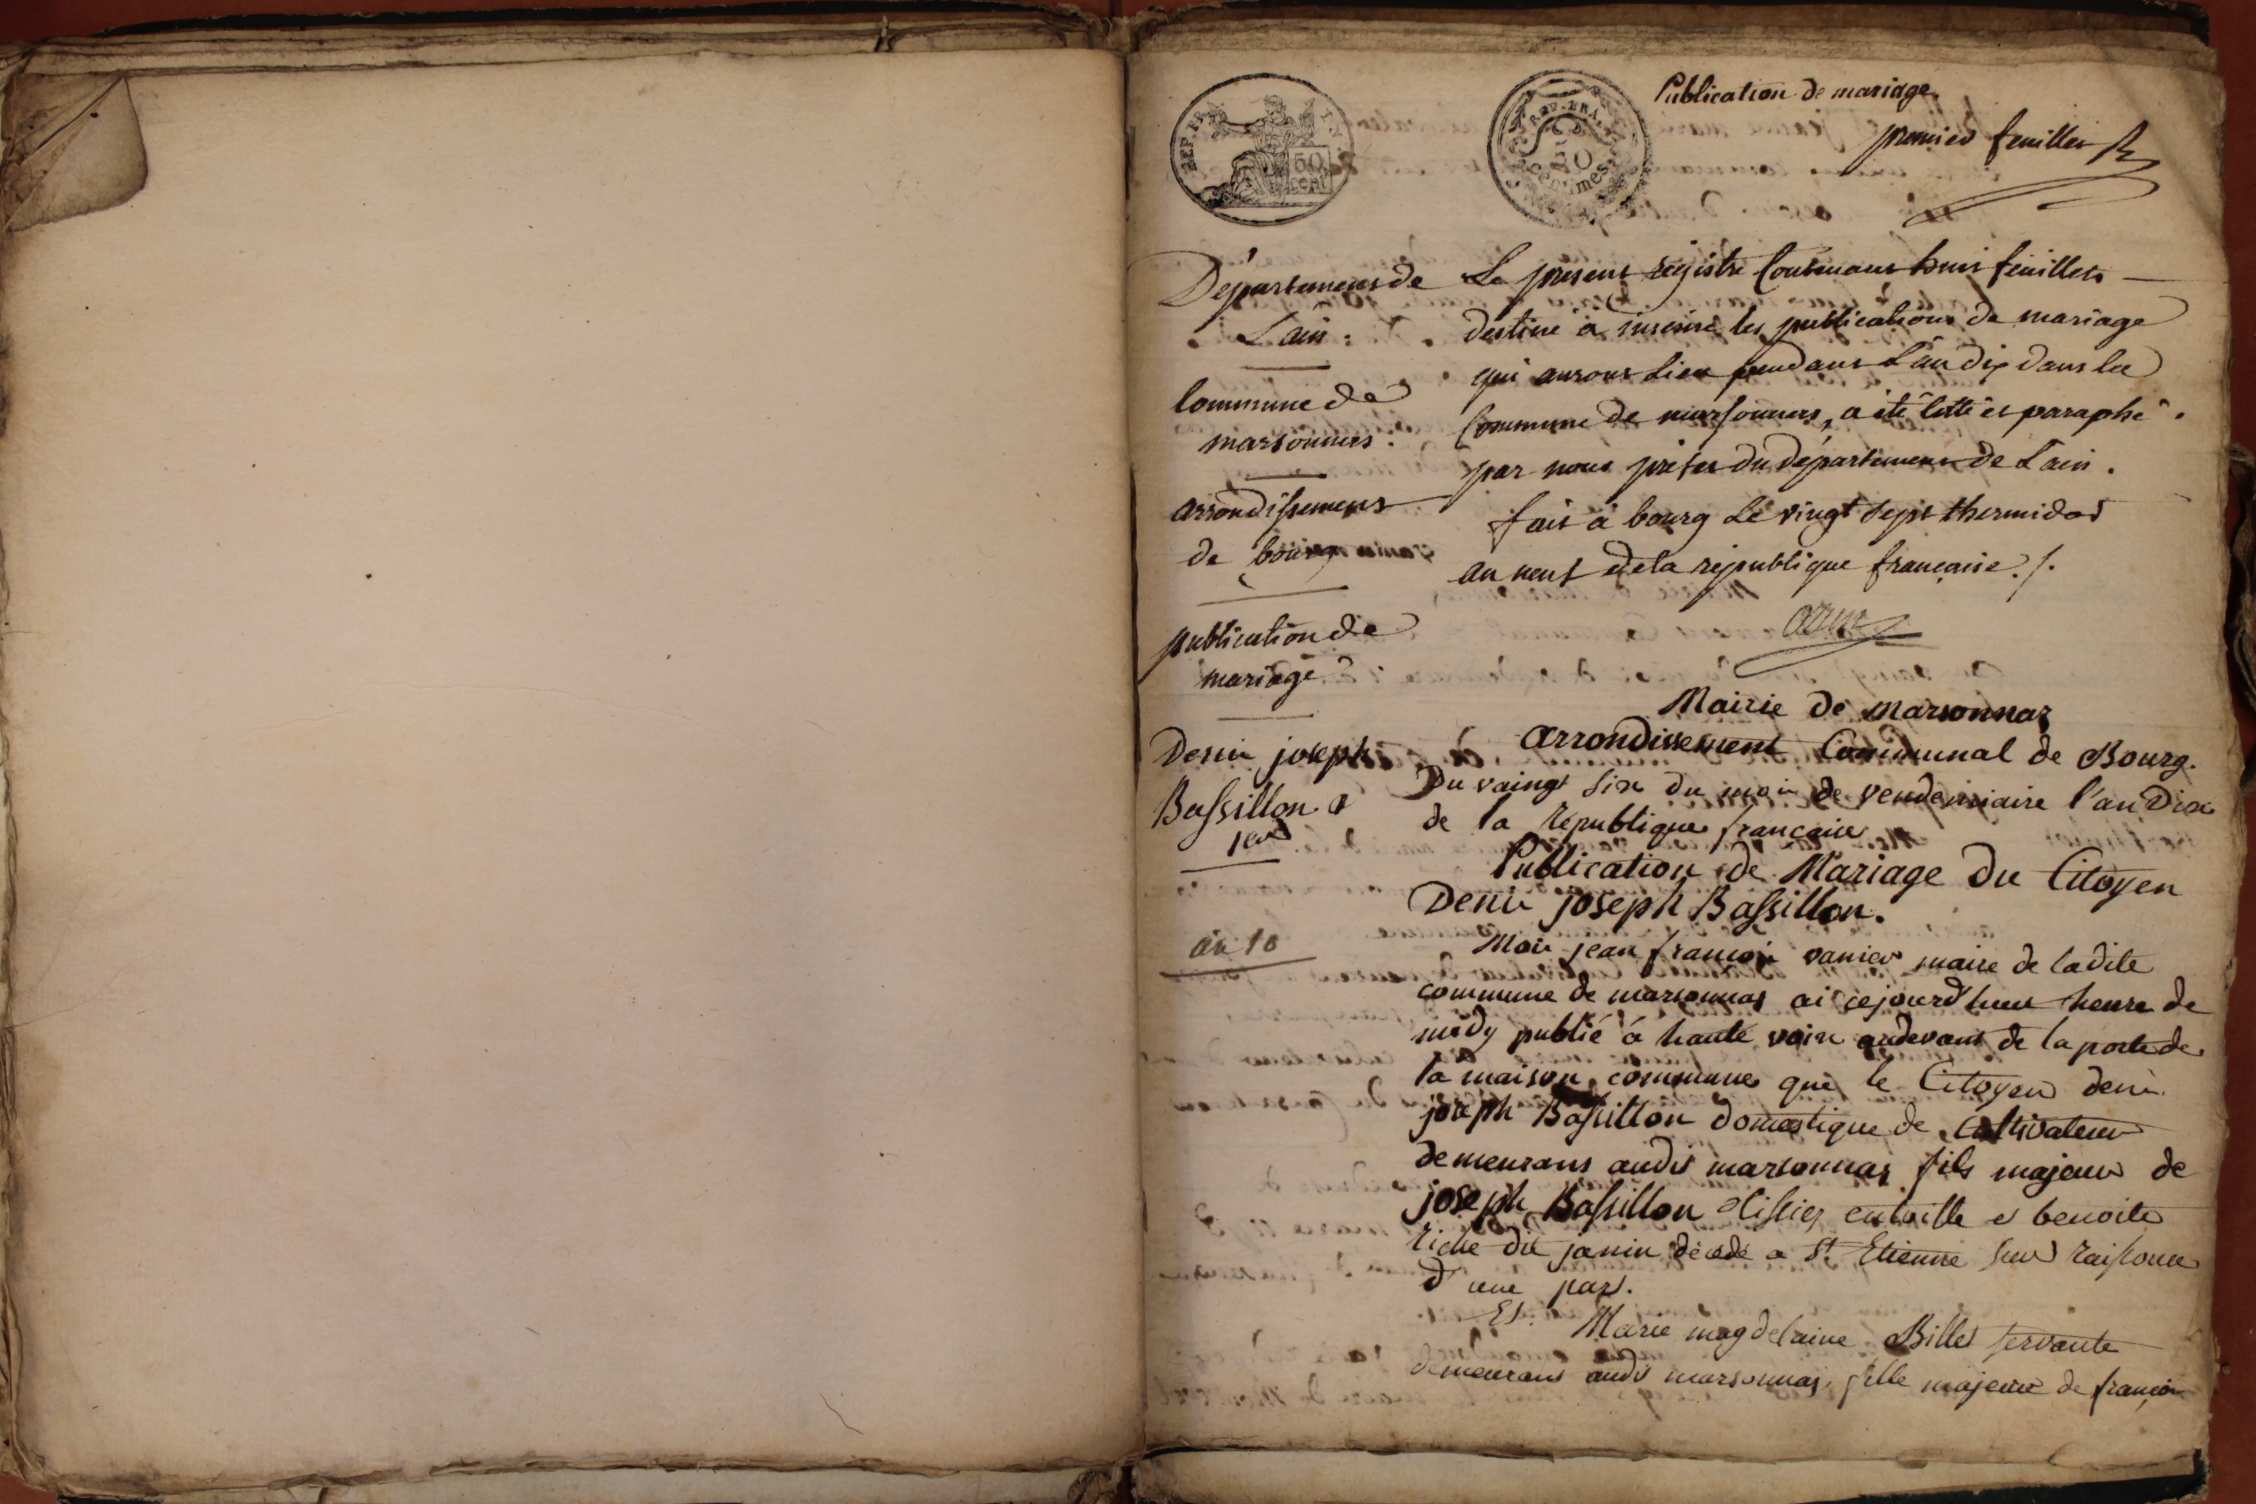 REP. FRA.
50 cent.
REP. FRA.
50
centimes
Publication de mariage.
premier feuillet
Département de
L'ain.
Commune de
marsonnas.
arrondissement
de bourg
publication de
mariage
Le present régistre Contenant huit feuillets
destiné à inscrire les publications de mariage
qui auront Lieu pendant L'an dix dans la
Commune de marsonnas, a été Cotté et paraphé
par nous préfet du département de L'ain.
fait à bourg Le vingt sept thermidor
an neuf de la république française./.
Mairie de marsonnas
arrondissement Communal de Bourg.
Denis joseph
Bassillon
1er
an 10
Du vaingt six du mois de vendemiaire l'an Dix
de la République francaise
Publication de Mariage du Citoyen
Denis joseph Bassillon.
Moi jean françois vanier maire de ladite
commune de marsonnas ai cejourd'huit heure de
midy publié à haute voix audevant de la porte de
la maison commune que le Citoyen denis
joseph Bassillon domestique de Cultivateur
demeurant audit marsonnas fils majeur de
joseph Bassillon tissier entoille et benoite
riche dit janin décédé a St. Etienne sur raissouse
d'une part.
Et Marie magdelaine Billet servante
demeurant audit marsonnas, fille majeure de françois